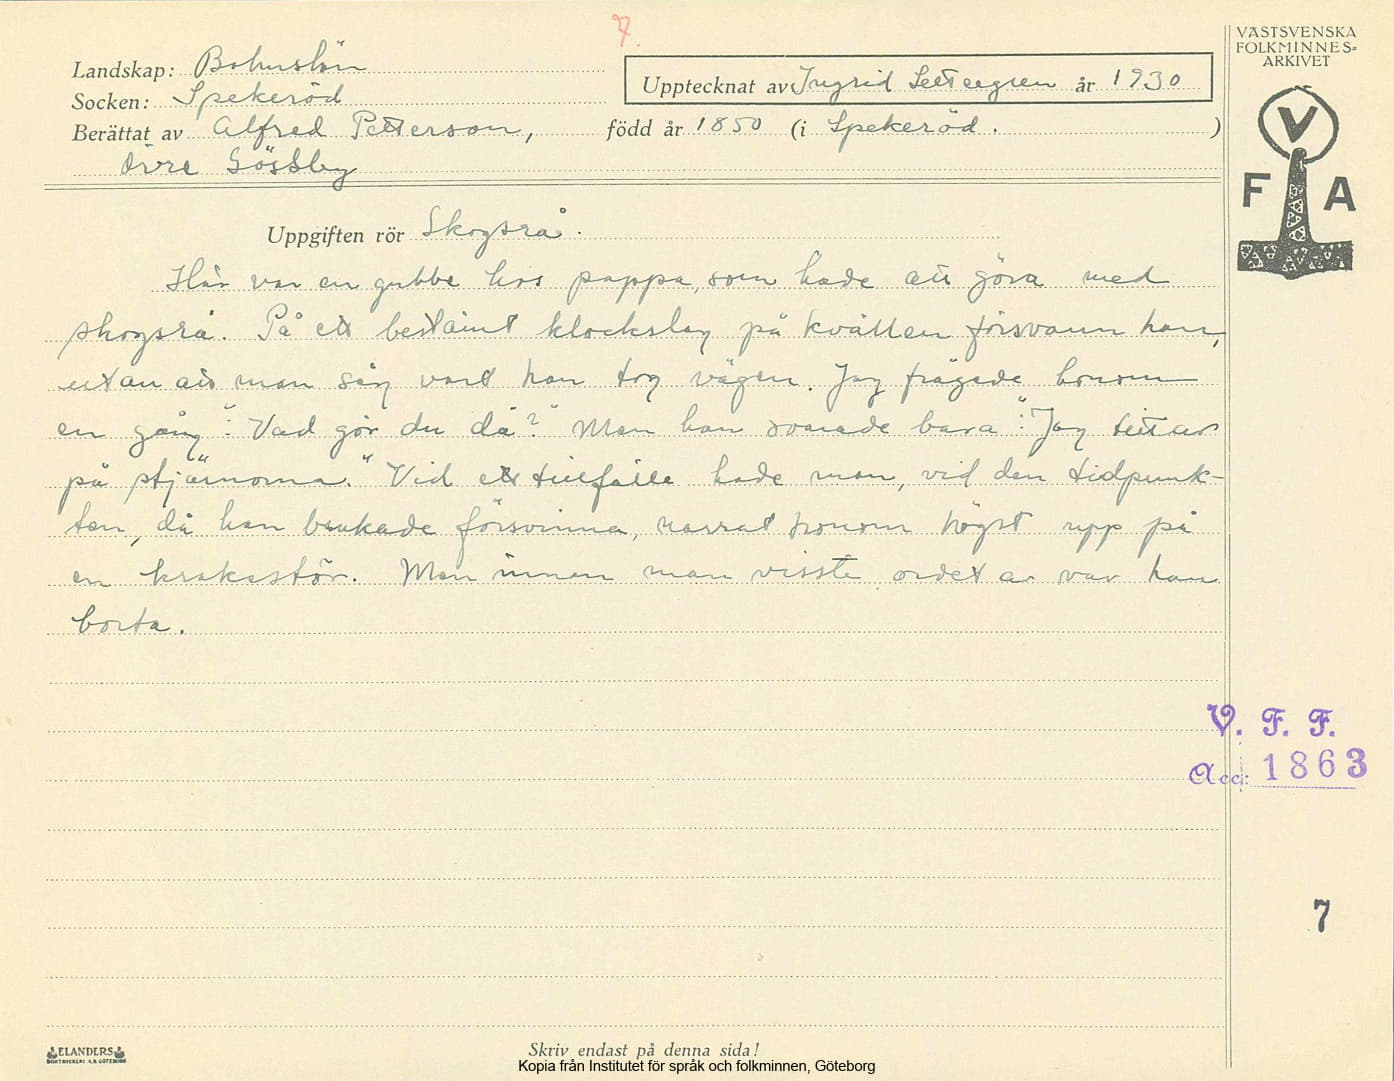 7.
VÄSTSVENSKA
FOLKMINNES=
ARKIVET
Landskap: Bohuslän
Upptecknat av Ingrid år 1930
Socken: Spekeröd
Berättat av Alfred Petterson, född år 1850 (i Spekeröd. )
Övre Gössby
V
F A
Uppgiften rör Skogsrå.
Här var en gubbe hos pappa, som hade att göra med
skogsrå. På ett bestämt klockslag på kvällen försvann han,
utan att man såg vart han tog vägen. Jag frågade honom
en gång: "Vad gör du då?" Men han svarade bara: "Jag tittar
på stjärnorna". Vid ett tillfälle hade man, vid den tidpunk-
ten, då han brukade försvinna, narrat honom högst upp på
en krakastör. Men innan man visste ordet av var han
borta.
V. F. F.
Acc: 1863
7
ELANDERS
BOKTRYCKERI A.B. GÖTEBORG
Skriv endast på denna sida!
Kopia från Institutet för språk och folkminnen, Göteborg